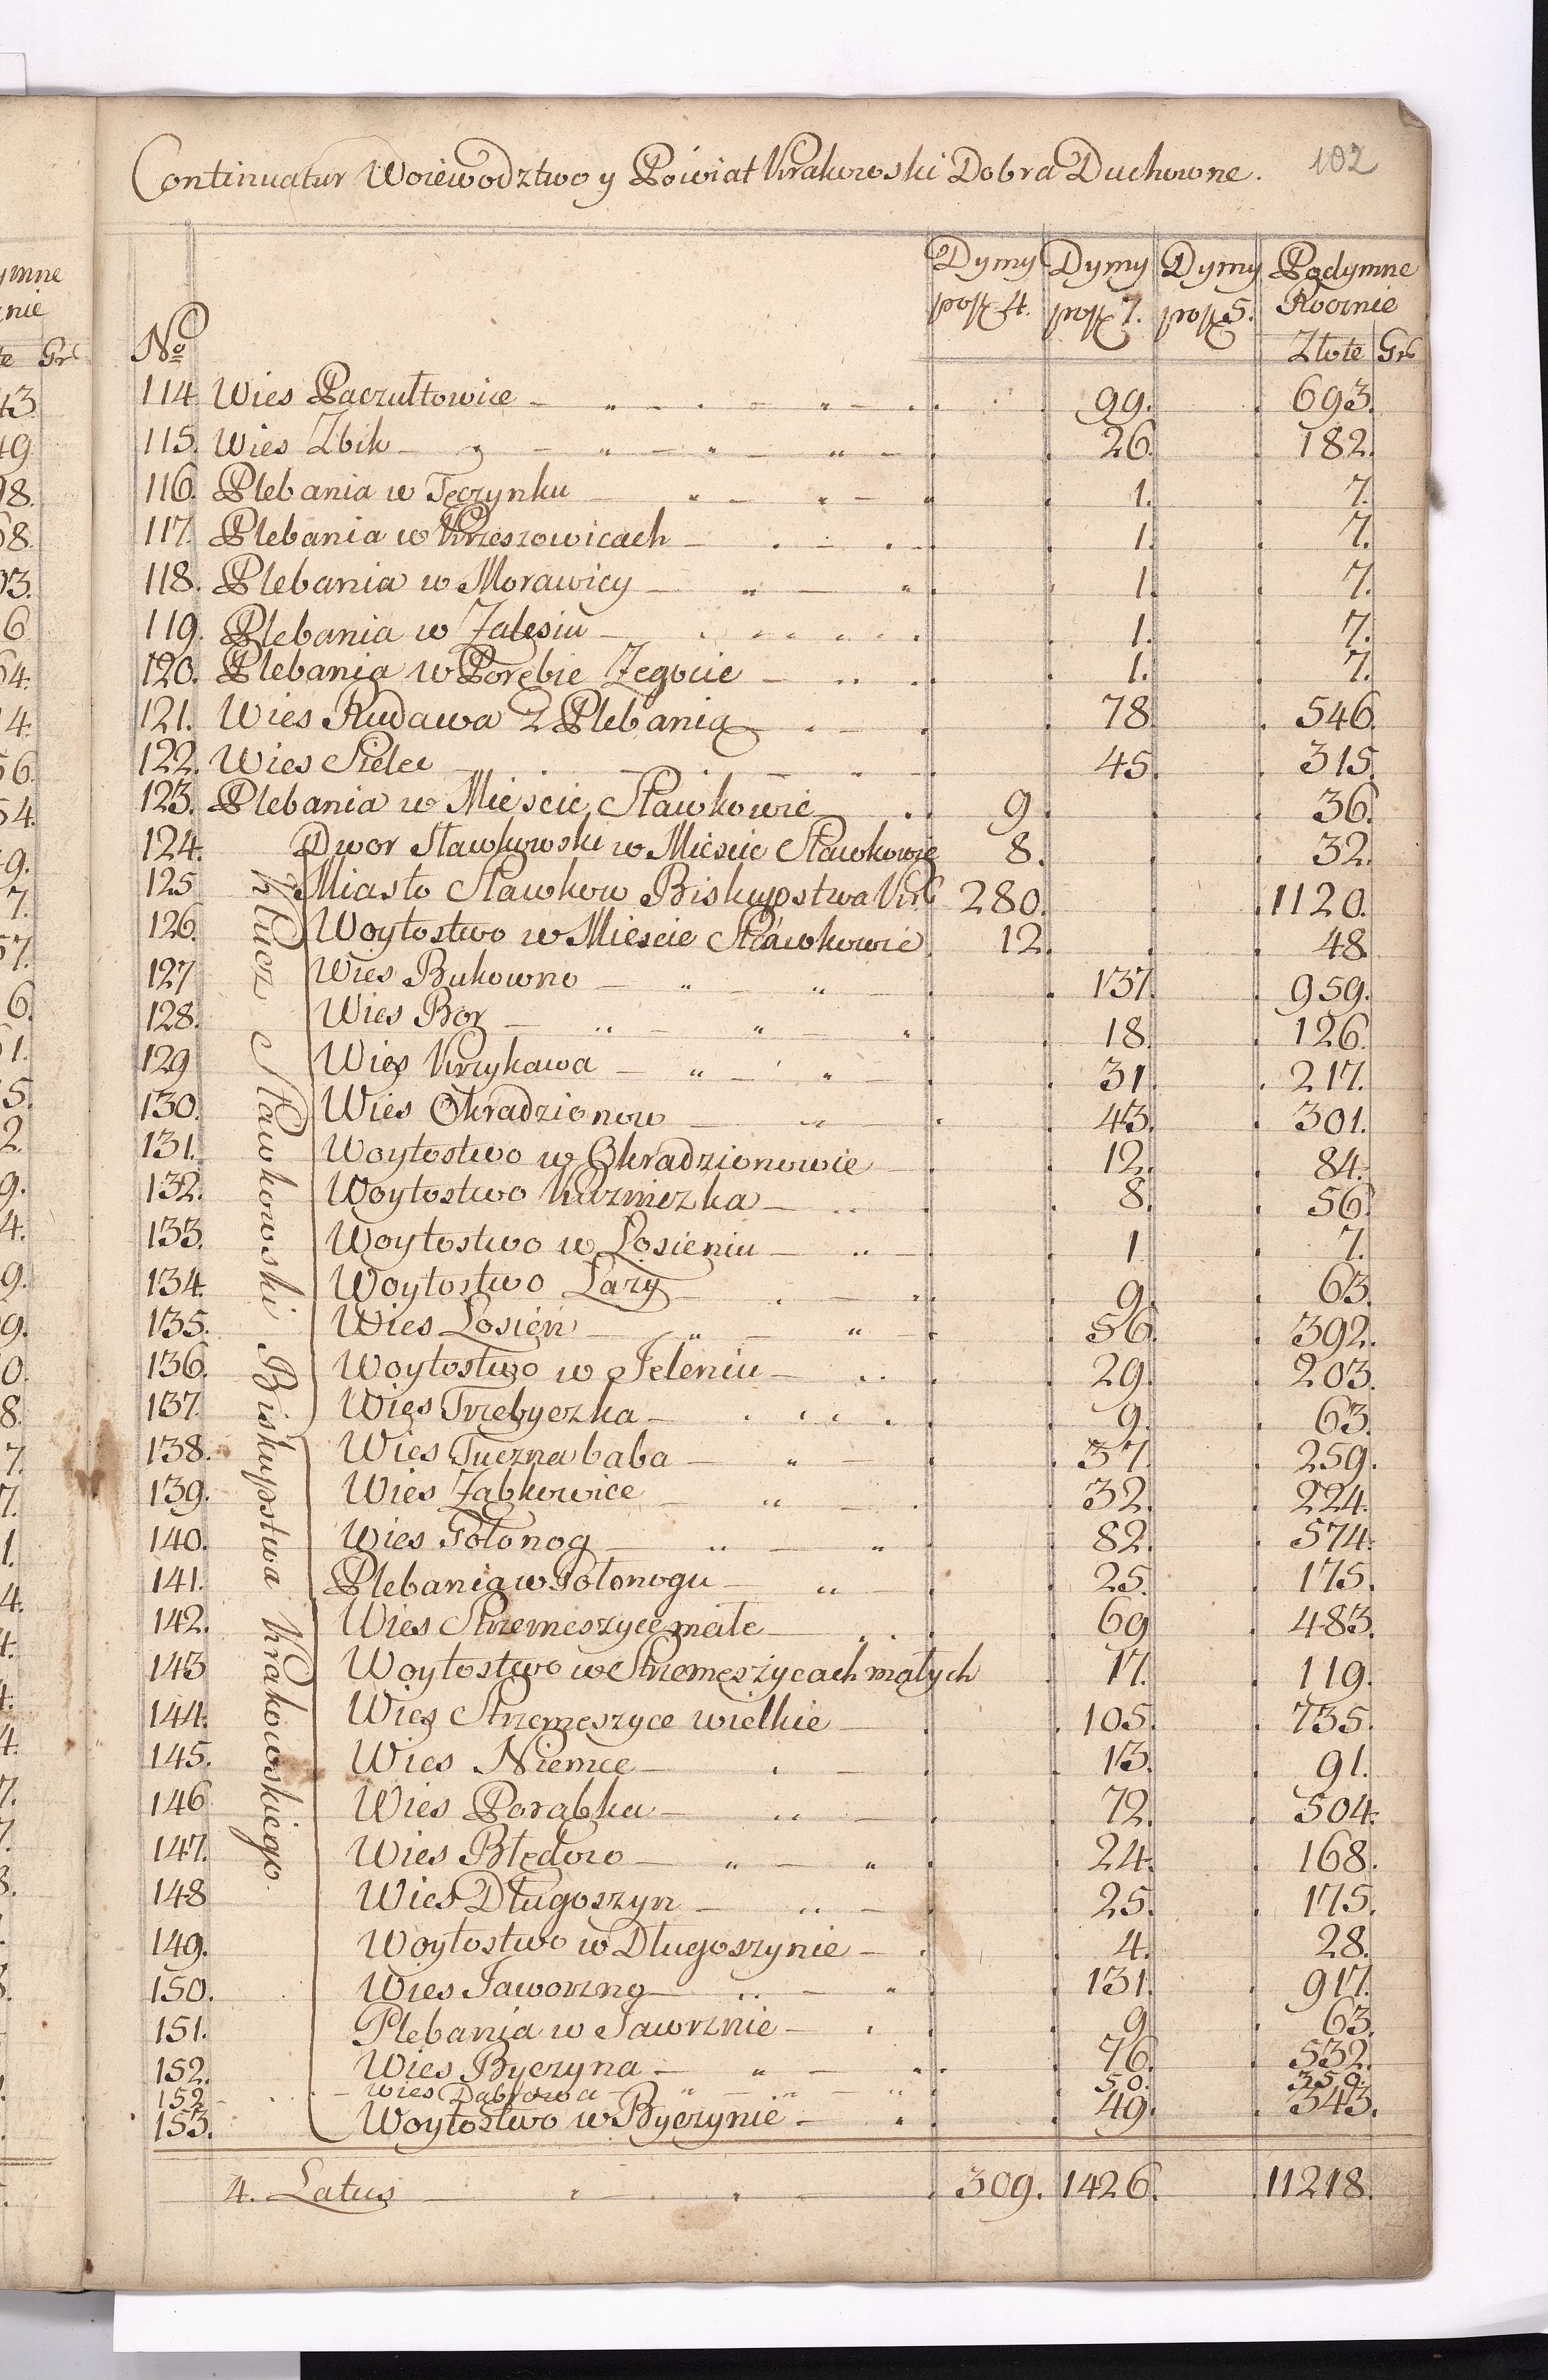 Continuatur Woiewodztwo y Powiat Krakowski Dobra Duchowne. 102
Dymy Dymy Dymy Podymne
po fz 4. po fz 7. po fz 5. Rocznie
No Złote Gr
114. Wies Paczułtowice 99. 693.
115. Wies Zbik 26. 182.
116. Plebania w Tęczynku 1. 7.
117. Plebania w Krzeszowicach 1. 7.
118. Plebania w Morawicy 1. 7.
119. Plebania w Zalesiu 1. 7.
120. Plebania w Porębie Zegocie 1. 7.
121. Wies Rudawa z Plebanią 78. 546.
122. Wies Sielec 45. 315.
123. Plebania w Miescie Sławkowie 9. 36.
124. Dwor Sławkowski w Miescie Sławkowie 8. 32.
125 Miasto Sławkow Biskupstwa Kr 280. 1120.
126. Woytostwo w Miescie Sławkowie 12. 48.
127 Wies Bukowno 137. 959.
128. Wies Bor 18. 126.
129 Wies Krzykawa 31. 217.
130. Wies Okradzionow 43. 301.
131. Woytostwo w Okradzionowie 12. 84.
132. Woytostwo Kuzniczka 8. 56.
133. Woytostwo w Łosieniu 1. 7.
134. Woytostwo Łazy 9. 63.
135. Wies Łosień 56. 392.
136. Woytostwo w Jeleniu 29. 203.
137. Wies Trzebyczka 9. 63.
138. Wies Tuczna baba 37. 259.
139. Wies Ząbkowice 32. 224.
140. Wies Gołonog 82. 574.
141. Plebania w Gołonogu 25. 175.
142. Wies Strzemeszyce małe 69 483.
143 Woytostwo w Strzemeszycach małych 17. 119.
144. Wies Strzemeszyce wielkie 105. 735.
145. Wies Niemce 13. 91.
146 Wies Porąbka 72. 504.
147. Wies Błędow 24. 168.
148 Wies Długoszyn 25. 175.
149. Woytostwo w Długoszynie 4. 28.
150. Wies Jaworzno 131. 917.
151. Plebania w Jaworznie 9 63.
152. Wies Byczyna 76. 532.
152 Wies Dąbrowa 50. 350.
153. Woytostwo w Byczynie 49. 343.
Klucz Sławkowski Biskupstwa Krakowskiego.
4. Latus 309. 1426. 11218.
ymne
nie
te Gr